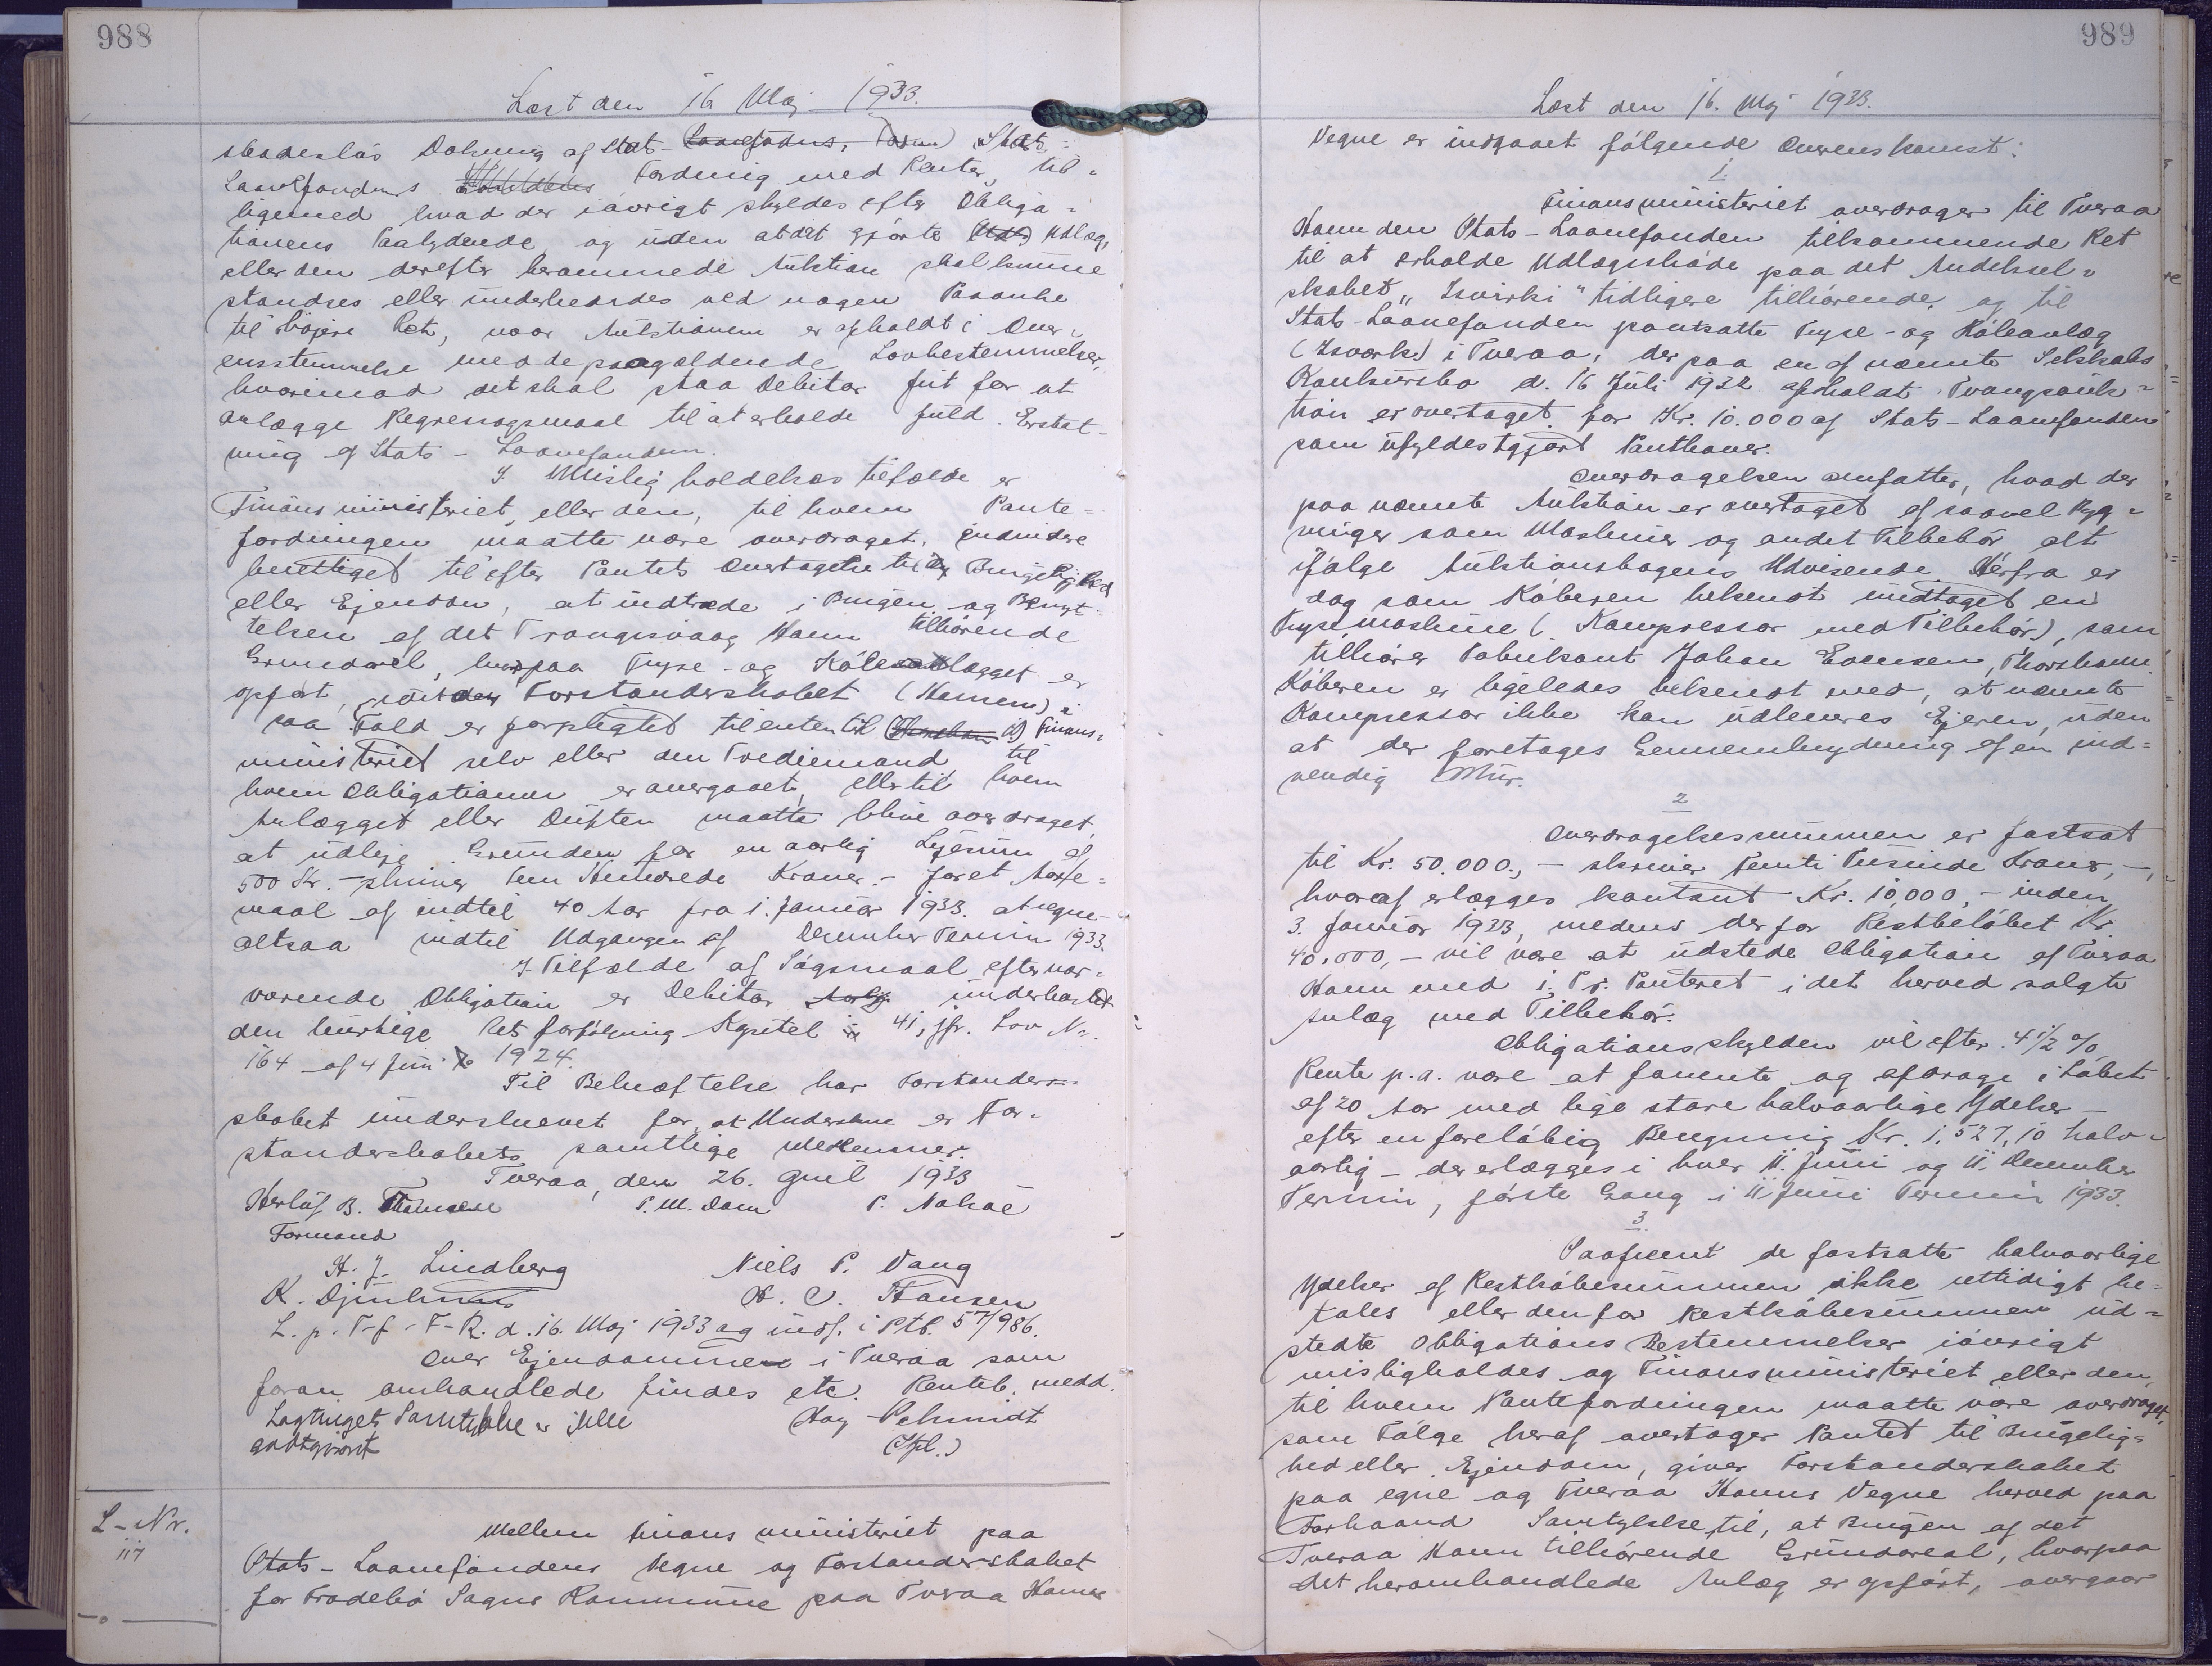 988
Læst den 16 Maj 1933.
skadesløs Dækning af Stats-Laanefondens, Stats-
Laanefondens Fordring med Renter, til-
ligemed hvad der iøvrigt skyldes efter Obliga-
tionens Paalydende, og uden at det gjorte Udlæg,
eller den derefter berammede Auktion skal kunne
standses eller underkendes ved nogen Paaanke
til højere Ret, naar Auktionen er afholdt i Over-
ensstemmelse med de paagældende Lovbestemmelser,
hvorimod det skal staa Debitor frit for at
anlægge Regressøgsmaal til at erholde fuld Erstat-
ning af Stats-Laanefonden.
I Misligholdelsestilfælde er
Finansministeriet, eller den, til hvem Pante-
fordringen maatte være overdraget, endvidere
berettiget til efter Pantets Overtagelse til Brugelighed
eller Ejendom, at indtræde i Brugen og Benyt-
telsen af det Trongisvaag Havn tilhørende
Grundareal, hvorpaa Fryse- og Køleanlægget er
opført, Forstanderskabet (Havnen) i
saa Fald er forpligtet til enten til Finans-
ministeriet selv eller den Trediemand til
hvem Obligationen er overgaaet, eller til hvem
Anlægget eller Driften maatte blive overdraget,
at udleje Grunden for en aarlig Lejesum af
500 Kr. - skriver Fem Hundrede Kroner - for et Aare-
maal af indtil 40 Aar fra 1. Januar 1933 at regne
altsaa indtil Udgangen af December Termin 1933.
I Tilfælde af Søgsmaal efter nær-
værende Obligation er Debitor underkastet
den hurtige Retsforfølgning Kapitel 41, jfr. Lov Nr.
164 af 4 Juni 1924.
Til Bekræftelse har Forstander-
skabet underskrevet for, at Underskrive er For-
standerskabets samtlige Medlemmer.
Tveraa, den 26. April 1933
Herluf B. Thomsen P. M. Dam P. Nolsøe
Formand
H. J. Lindberg Niels P. Vang
K. Djurhuus H. C. Hansen
L. p. T-f-F-R. d. 16. Maj 1933 og indf. i Ptb. 57/986.
Over Ejendommen i Tveraa som
foran omhandlede findes etc. Renteb. medd.
Lagtingets Samtykke er ikke Hay-Schmidt
godtgjort (Stpl.)
L-Nr.
117
Mellem Finansministeriet paa
Stats-Laanefondens Vegne og Forstanderskabet
for Frodebø Sogns Kommune paa Tveraa Havns
989
Læst den 16. Maj 1933.
Vegne er indgaaet følgende Overenskomst:
1.
Finansministeriet overdrager til Tveraa
Havn den Stats-Laanefonden tilkommende Ret
til at erholde Udlægsskøde paa det Andelssel-
skabet "Isvirki" tidligere tilhørende, og til
Stats-Laanefonden pantsatte Fryse- og Køleanlæg
(Isværk) i Tveraa, der paa en af nævnte Selskabs
Konkursbo d. 16 Juli 1932 afholdt Tvangsauk-
tion er overtaget for Kr. 10.000 af Stats-Laanefonden
som ufyldestgjort Panthaver.
Overdragelsen omfatter, hvad der
paa nævnte Auktion er overtaget af saavel Byg-
ninger som Maskiner og andet Tilbehør alt
ifølge Auktionsbogens Udvisende. Herfra er
dog som Køberen bekendt undtaget en
Frysemaskine (Kompressor med Tilbehør), som
tilhører Fabrikant Johan Evensen, Thorshavn.
Køberen er ligeledes bekendt med, at nævnte
Kompressor ikke kan udleveres Ejeren, uden
at der foretages Gennembrydning af en ind-
vendig Mur.
2
Overdragelsessummen er fastsat
til Kr. 50.000, - skriver Femti Tusinde Kroner, -,
hvoraf erlægges kontant Kr. 10,000, - inden
3. Januar 1933, medens der for Restbeløbet Kr.
40.000, - vil være at udstede Obligation af Tveraa
Havn med 1. Pr. Panteret i det herved solgte
Anlæg med Tilbehør.
Obligationsskylden vil efter 4 1/2 %
Rente p.a. være at forrente og afdrage i Løbet
af 20 Aar med lige store halvaarlige Ydelser -
efter en foreløbig Beregning Kr. 1,527,10 halv-
aarlig - der erlægges i hver 11. Juni og 11. December
Termin, første Gang i 11 Juni Termin 1933.
3.
Saafremt de fastsatte halvaarlige
Ydelser af Restkøbesummen ikke rettidigt be-
tales eller den for Restkøbesummen ud-
stedte Obligations Bestemmelser iøvrigt
misligholdes og Finansministeriet eller den,
til hvem Pantefordringen maatte være overdraget,
som Følge heraf overtager Pantet til Brugelig-
hed eller Ejendom, giver Forstanderskabet
paa egne og Tveraa Havns Vegne herved paa
Forhaand Samtykke til, at Brugen af det
Tveraa Havn tilhørende Grundareal, hvorpaa
det heromhandlede Anlæg er opført, overgaar